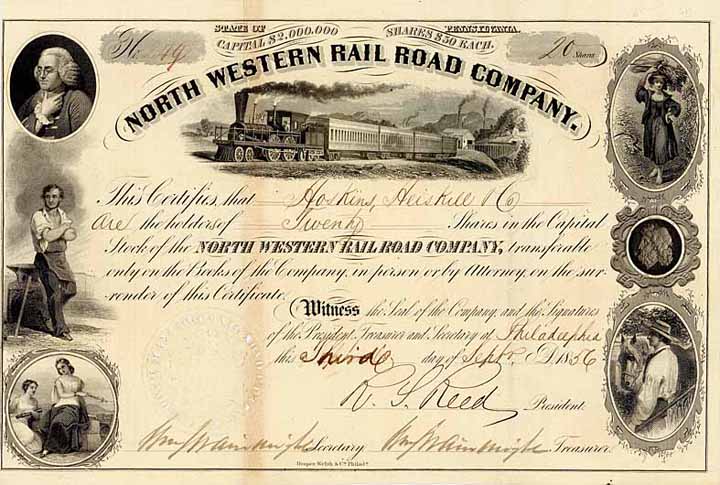 STATE OF PENNSYLVANIA.
CAPITAL $2.000.000 SHARES $50 EACH.
No. 20 Shares
NORTH WESTERN RAIL ROAD COMPANY.
This Certifies, that Hoskins, Heiskell & Co
are the holders of Twenty Shares in the Capital
Stock of the NORTH WESTERN RAIL ROAD COMPANY, transferable
only on the Books of the Company, in person or by Attorney, on the sur-
render of this Certificate.
Witness the Seal of the Company, and the Signatures
of the President, Treasurer and Secretary at Philadelphia
this Third day of Sept. A.D. 1856
R. S. Reed President.
Wm Wainwright Secretary Wm Wainwright Treasurer.
Draper, Welsh & Co. Philada.